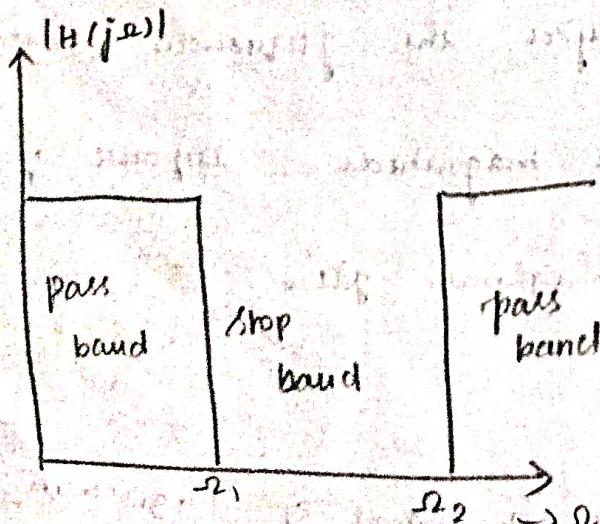 |H(jΩ)|
pass
band
stop
band
pass
band
Ω₁
Ω₂
→ Ω